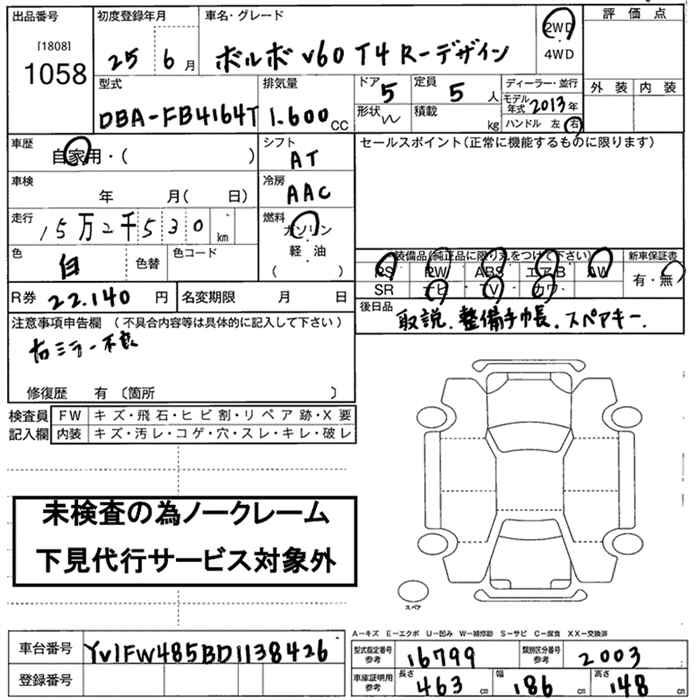 出品番号 初度登録年月 車名・グレード 評価点
[1808] 2WD
1058 25 6月 ボルボ V60 T4 R-デザイン ・4WD
型式 排気量 ドア 5 定員 5人 ディーラー・並行 外装 内装
DBA-FB4164T 1.600cc 形状 W 積載 kg モデル年式 2013年
ハンドル 左 右
車歴 自家用・( ) シフト AT セールスポイント(正常に機能するものに限ります)
車検 年 月( 日) 冷房 AAC
走行 15万2千530km 燃料 ガソリン・軽・油 ( )
色 白 色替 色コード
装備品(純正品に限り丸をつけて下さい) 新車保証書
PS PW ABS エアB AW 有・無
SR ナビ TV カワ
R券 22.140円 名変期限 月 日 後日品
取説.整備手帳.スペアキー.
注意事項申告欄 (不具合内容等は具体的に記入して下さい)
右ミラー不良
修復歴 有 〔箇所 〕
検査員 FW キズ・飛石・ヒビ割・リペア跡・X要
記入欄 内装 キズ・汚レ・コゲ・穴・スレ・キレ・破レ
未検査の為ノークレーム
下見代行サービス対象外
スペア
A-キズ E-エクボ U-凹み W-補修跡 S-サビ C-腐食 XX-交換済
車台番号 YV1FW485BD1138426 型式指定番号 参考 16799 類別区分番号 参考 2003
登録番号 車庫証明用 参考 長さ 463cm 幅 186cm 高さ 148cm